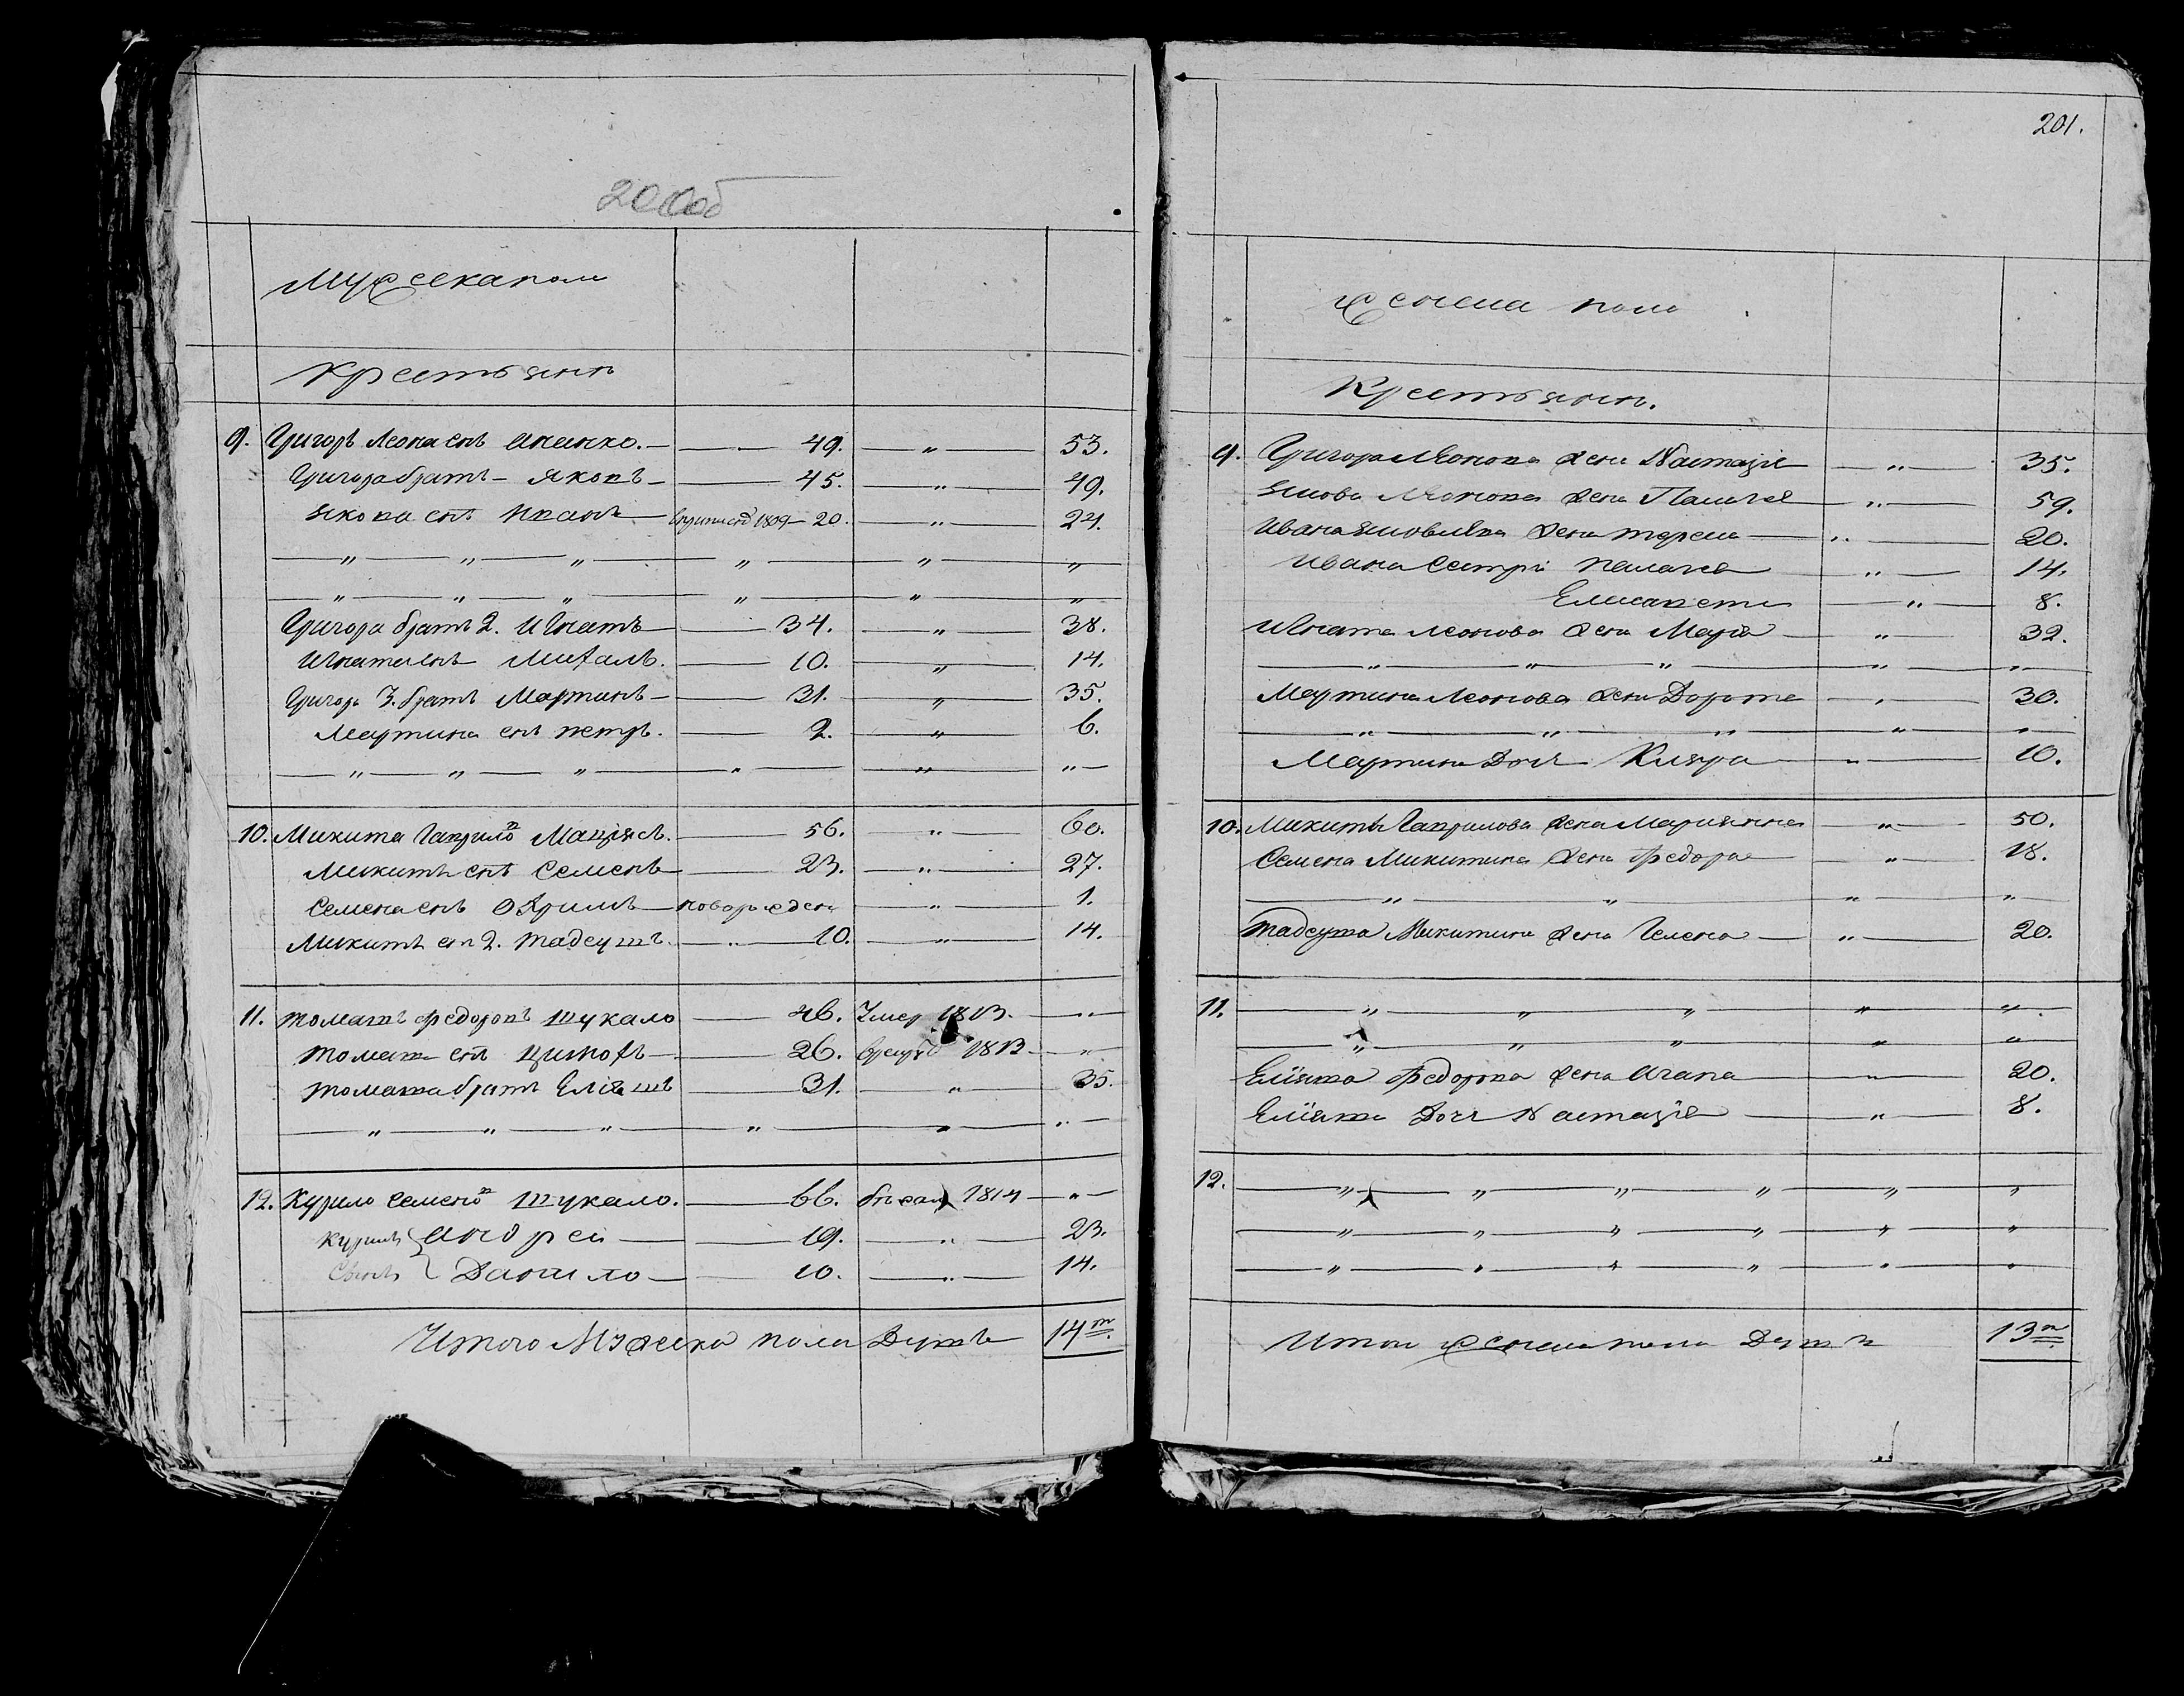 200об
Мужска пола
Крестьянъ
9. Григоръ Леона снъ — 49. „ 53.
Григора братъ — Яковъ — 45. „ 49.
Якова снъ Иванъ — 1809 — 20. „ 24.
„ „ „ „ „ „
„ „ „ „ „ „
Григора братъ 2. Игнатъ — 34. „ 38.
Игната снъ Михалъ. — 10. „ 14.
Григора 3. братъ Мартинъ — 31. „ 35.
Мартина снъ петръ. — 2. „ 6.
„ „ „ „ „ „
10. Микита Гаврило Мацясъ. — 56. „ 60.
Микиты снъ Семенъ — 23. „ 27.
Семена снъ — новорожден „ 1.
Микиты снъ 2. тадеушъ. — 10. „ 14.
11. томашъ федоровъ шукало — 46. Умер 1813. „
томаша снъ — 26. 1813 „
томаша братъ Еліяшъ — 31. „ 35.
„ „ „ „ „ „
12. Курило Семено шукало. — 66. бежал 1814 „
Курила Андрей — 19. „ 23.
Сыны Данило — 10. „ 14.
Итого Мужска пола Душъ 14
201.
женска пола
Крестьянъ.
9. Григора Леонова жена Настазія „ 35.
Якова Леонова жена Палагея „ 59.
Ивана Яковлева жена тереса „ 20.
Ивана Сестры палагея „ 14.
Елисавета „ 8.
Игната леонова жена Марія „ 32.
„ „ „ „ „
Мартина Леонова жена Дорота „ 30.
„ „ „ „ „
Мартина Дочь Кляра „ 10.
10. Микиты Гаврилова жена Марианна „ 50.
Семена Микитина жена Федора „ 18.
„ „ „ „
тадеуша Микитина жена Гелена „ 20.
11. „ „ „ „ „
„ „ „ „ „
Еліяша Федорова жена Агапа „ 20.
Еліяша Дочь Настазія „ 8.
12. „ „ „ „ „ „
„ „ „ „ „ „
„ „ „ „ „ „
Итого женска пола Душъ 13